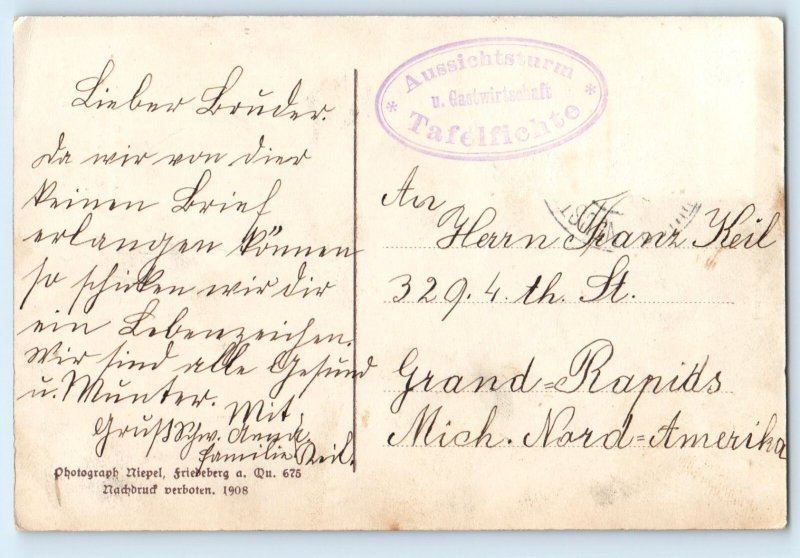 Lieber Bruder.
Da wir von dier
keinen Brief
erlangen können
so schicken wir dir
ein Lebenzeichen.
Wir sind alle Gesund
u. Munter.
Mit
Gruß Schw. Anna.
Familie Keil.
Photograph Niepel, Friedeberg a. Qu. 675
Nachdruck verboten. 1908
* Aussichtsturm *
u. Gastwirtschaft
Tafelfichte
An
Herrn Franz Keil
329. 4. th. St.
Grand=Rapids
Mich. Nord=Amerika